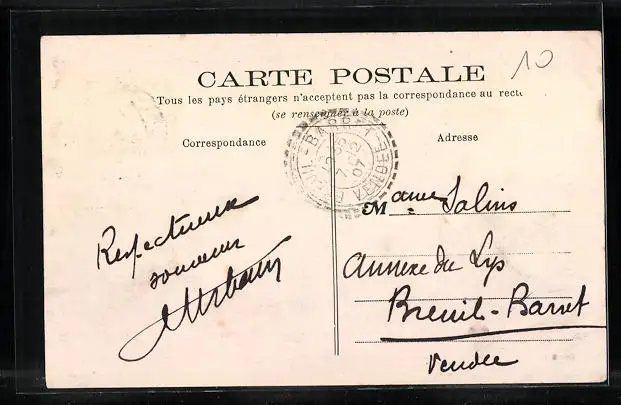 10
CARTE POSTALE
Tous les pays étrangers n'acceptent pas la correspondance au recto
(se renseigner à la poste)
Correspondance
Adresse
BREUIL-BARRET
VENDEE
Respectueux
souvenir
Mame Salins
Annexe du Lys
Breuil-Barret
Vendée